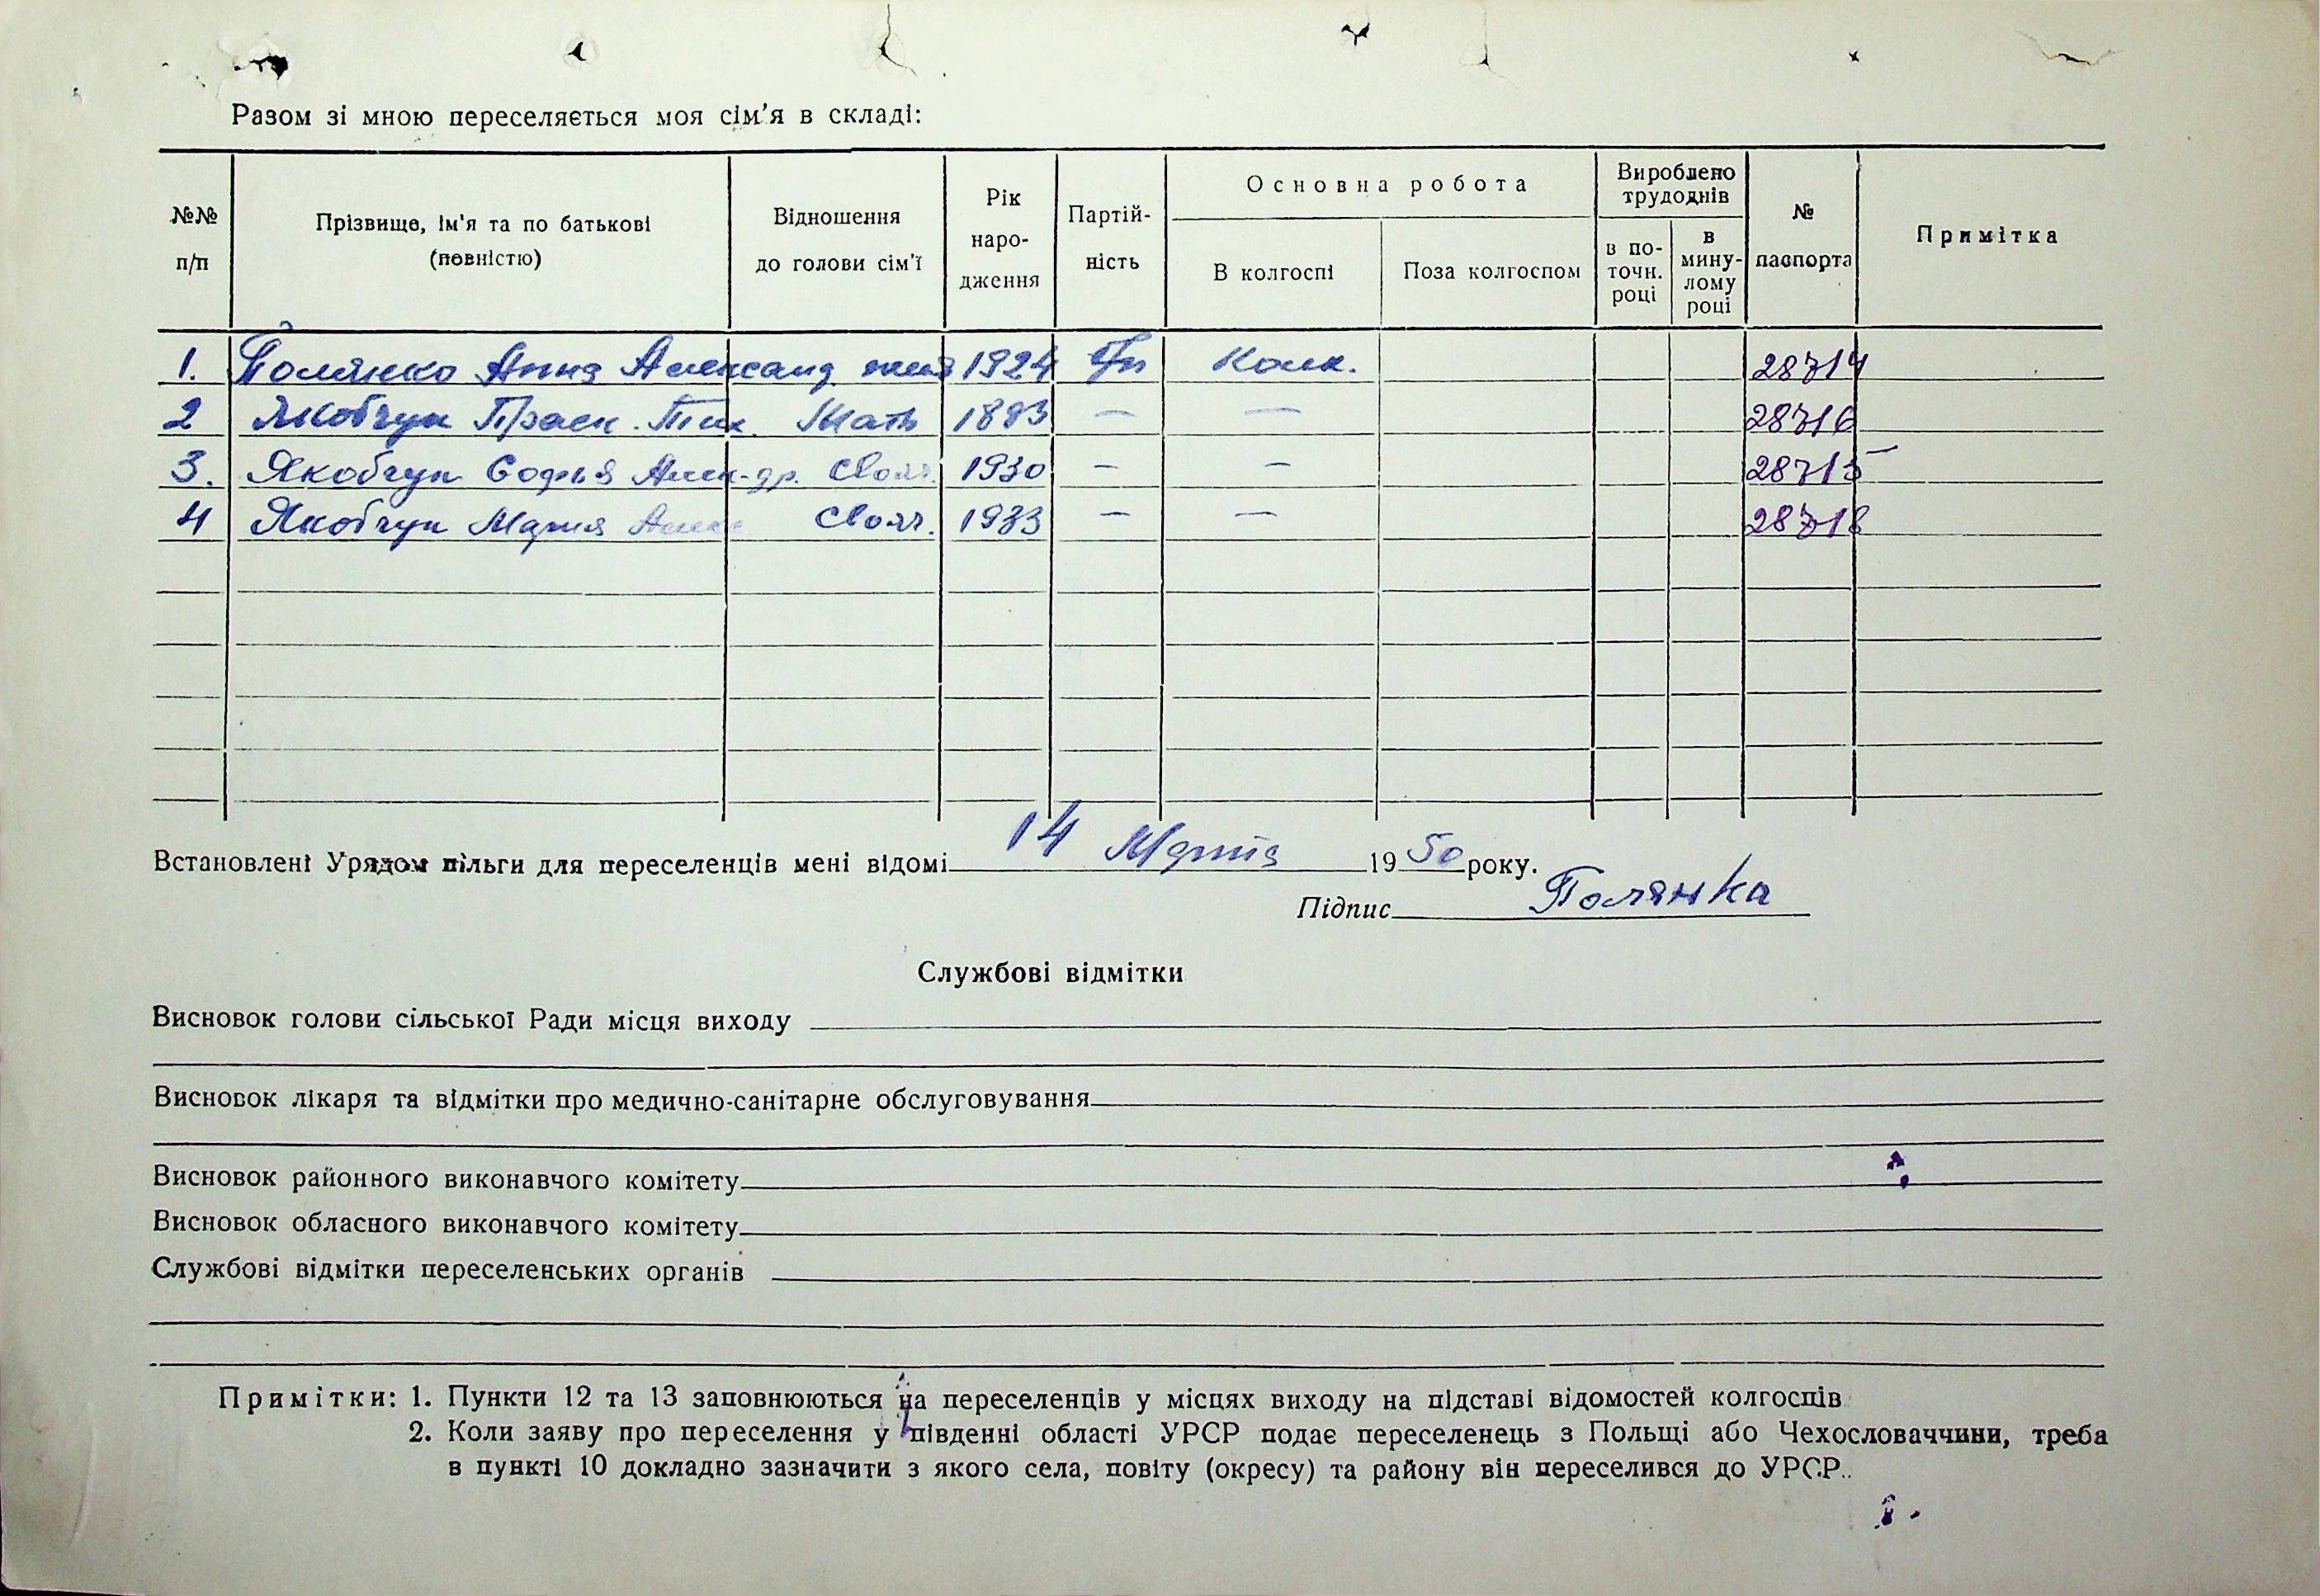 Разом зі мною переселяється моя сім'я в складі:
№№ п/п
Прізвище, ім'я та по батькові (повністю)
Відношення до голови сім'ї
Рік народження
Партійність
Основна робота
В колгоспі
Поза колгоспом
Вироблено трудоднів
в поточн. році
в минулому році
№ паспорта
Примітка
1. Полянко Анна Александ. жена 1924 Колх. 28714
2 Якобчук Праск. Мать 1893 — — 28716
3. Якобчук Софья Алек-др. Своя. 1930 — — 28715
4 Якобчук Мария Алекс Свояч. 1933 — — 28718
Встановлені Урядом пільги для переселенців мені відомі 14 Марта 1950 року.
Підпис Полянка
Службові відмітки
Висновок голови сільської Ради місця виходу
Висновок лікаря та відмітки про медично-санітарне обслуговування
Висновок районного виконавчого комітету
Висновок обласного виконавчого комітету
Службові відмітки переселенських органів
Примітки: 1. Пункти 12 та 13 заповнюються на переселенців у місцях виходу на підставі відомостей колгоспів
2. Коли заяву про переселення у південні області УРСР подає переселенець з Польщі або Чехословаччини, треба
в пункті 10 докладно зазначити з якого села, повіту (окресу) та району він переселився до УРСР.